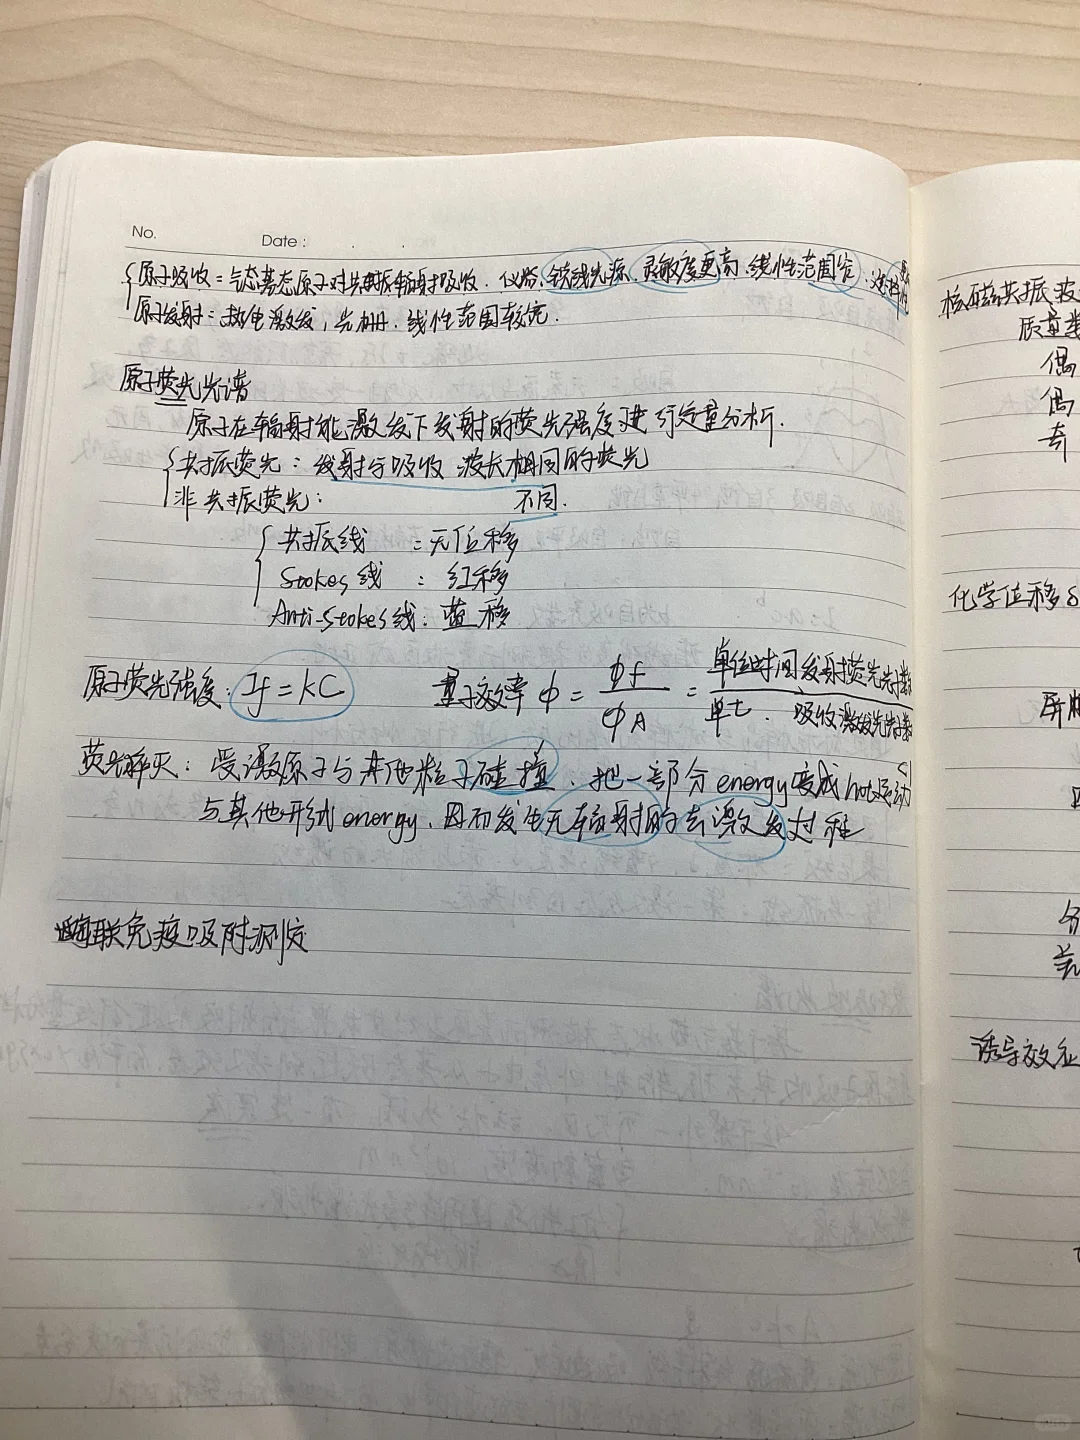 No.
Date : . .
原子吸收=气态基态原子对共振辐射吸收. 仪器、锐线光源、灵敏度更高、线性范围窄.
原子发射=热电激发, 光栅. 线性范围较宽.
原子荧光光谱
原子在辐射能激发下发射的荧光强度进行定量分析.
共振荧光: 发射与吸收 波长相同的荧光
非共振荧光: 不同.
共振线 : 无位移
Stokes线 : 红移
Anti-Stokes线: 蓝移
原子荧光强度: If = KC
量子效率 φ = φf / φA = 单位时间发射荧光光子数 / 单t. 吸收激发光子数
荧光猝灭: 受激原子与其他粒子碰撞、把一部分energy变成hot运动
与其他形式energy, 因而发生无辐射的去激发过程
酶联免疫吸附测定
核磁共振波
质量
偶
偶
奇
化学位移 δ
屏
诱导效应